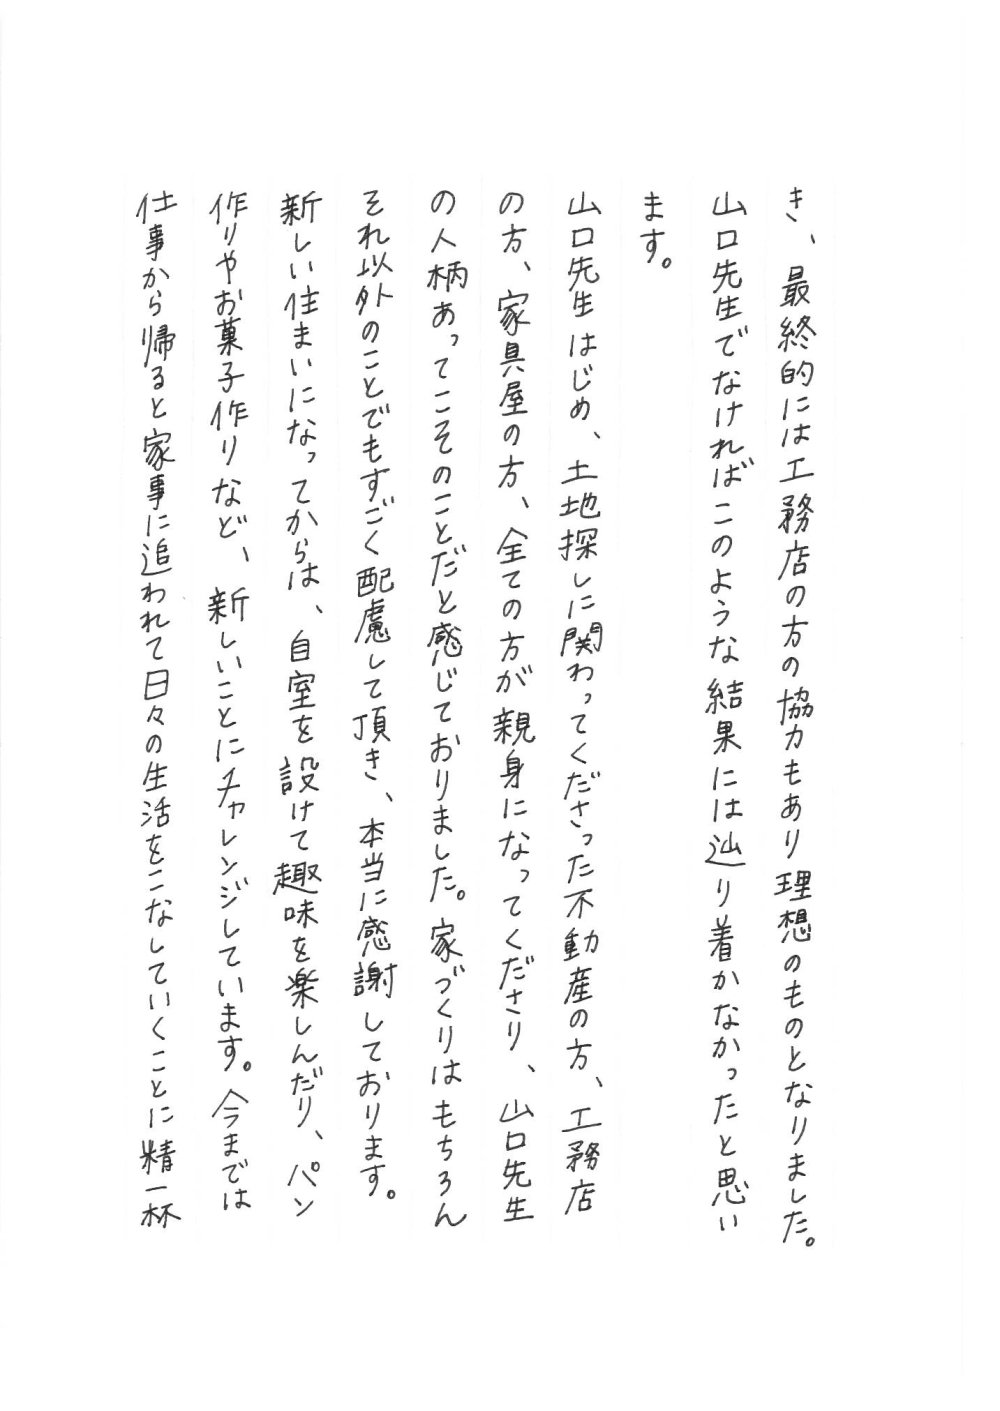 き、最終的には工務店の方の協力もあり理想のものとなりました。
山口先生でなければこのような結果には辿り着かなかったと思い
ます。
山口先生はじめ、土地探しに関わってくださった不動産の方、工務店
の方、家具屋の方、全ての方が親身になってくださり、山口先生
の人柄あってこそのことだと感じておりました。家づくりはもちろん
それ以外のことでもすごく配慮して頂き、本当に感謝しております。
新しい住まいになってからは、自室を設けて趣味を楽しんだり、パン
作りやお菓子作りなど、新しいことにチャレンジしています。今までは
仕事から帰ると家事に追われて日々の生活をこなしていくことに精一杯